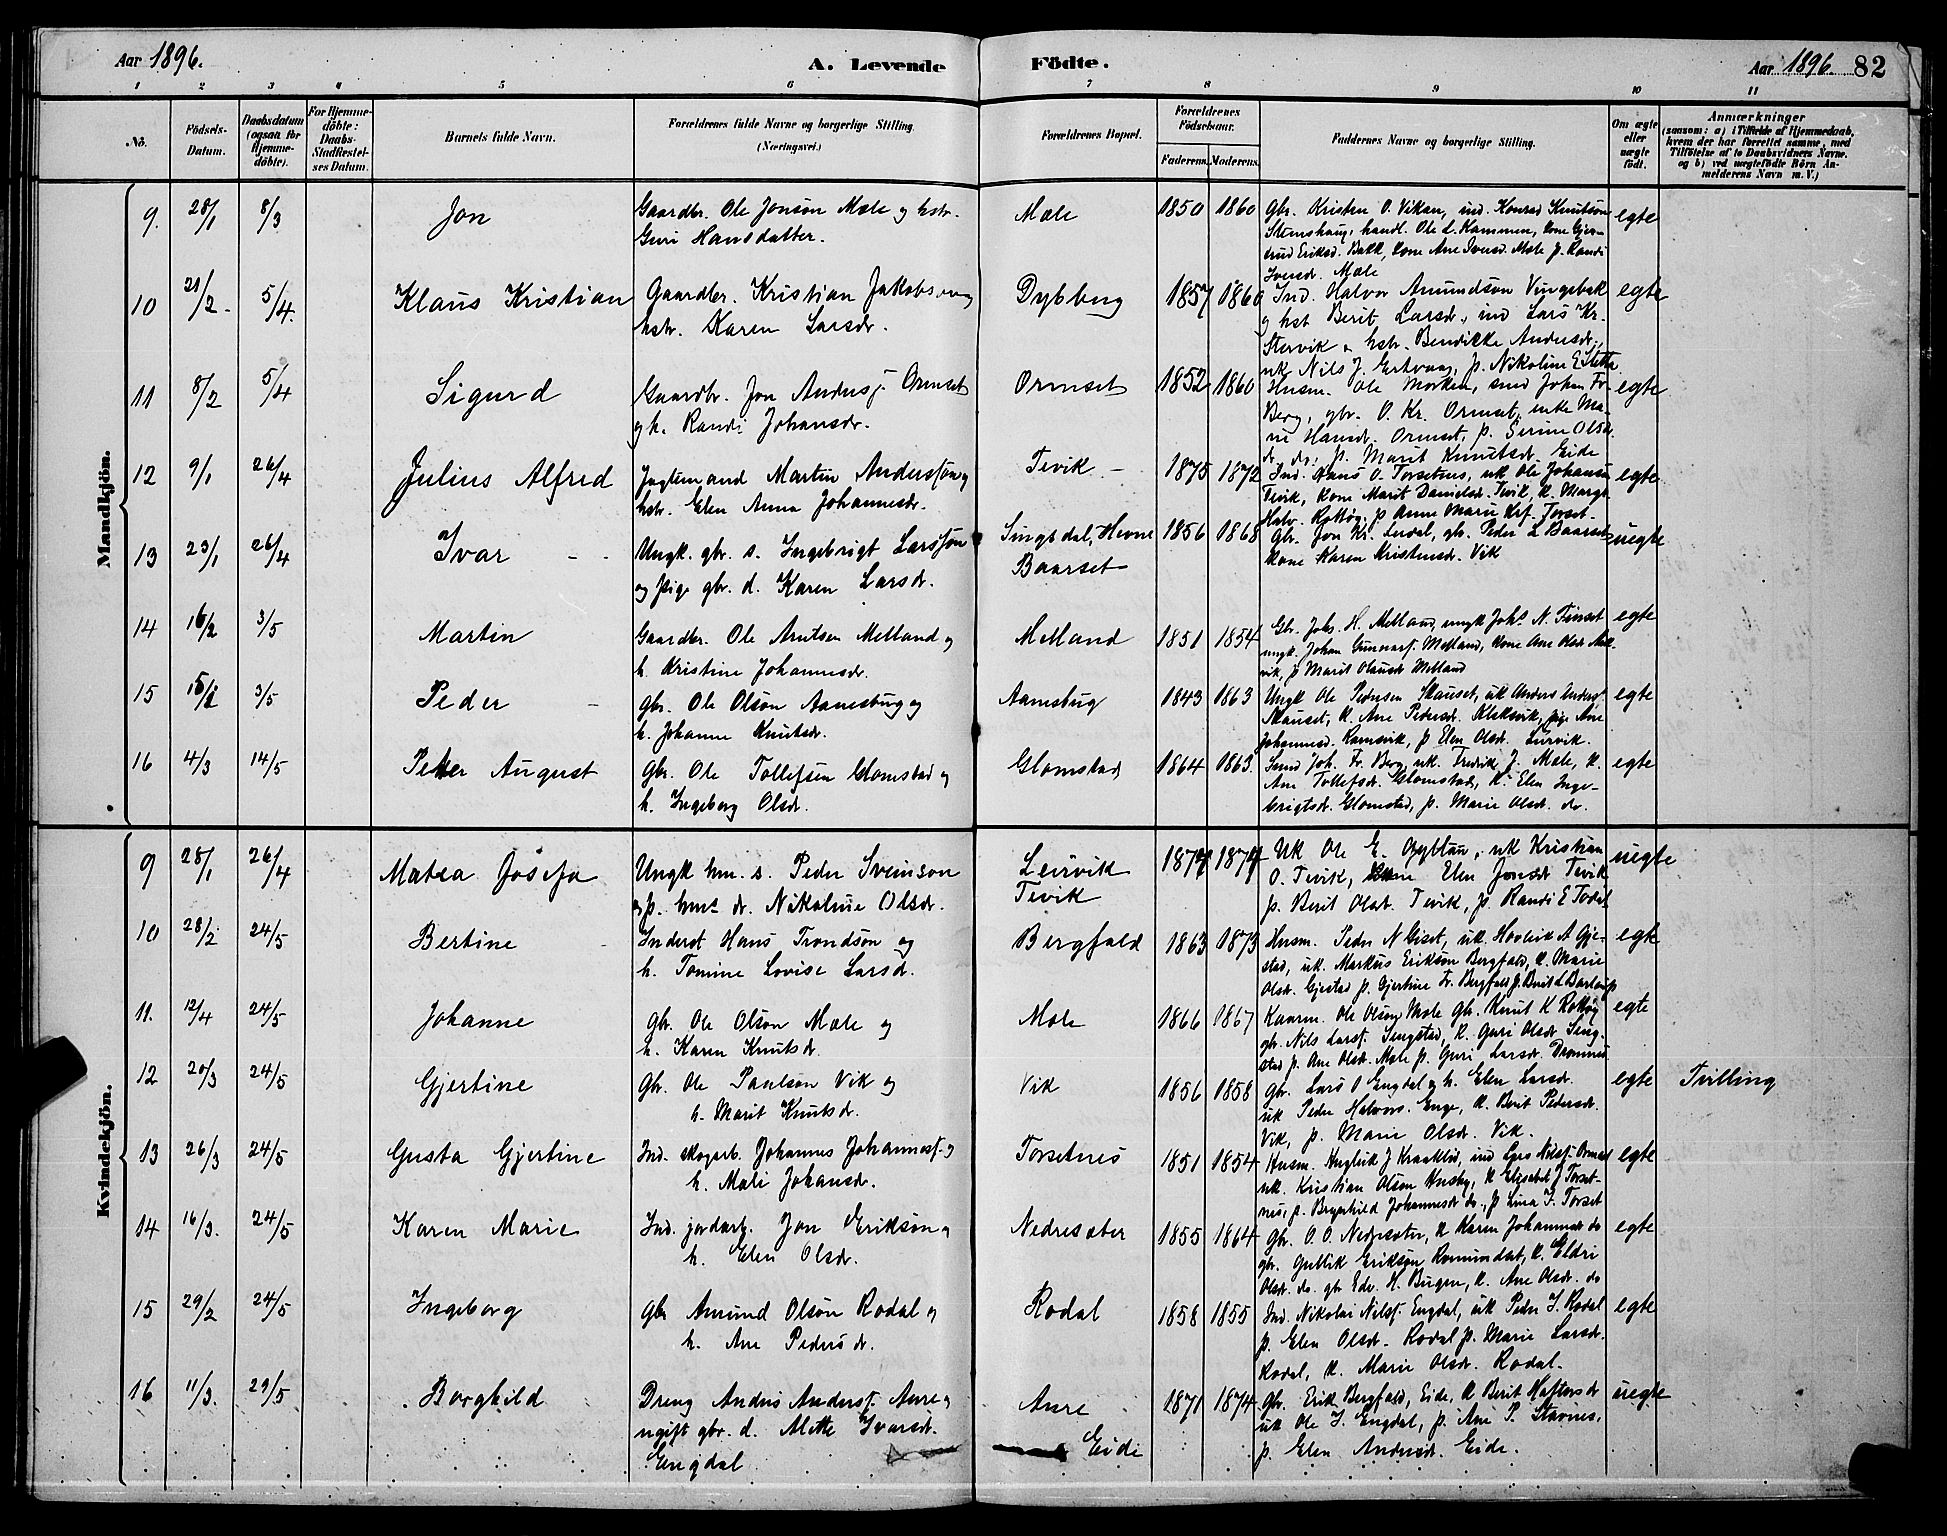 Aar 1896.
A. Levende Födte.
Aar 1896. 82
1 2 3 4 5 6 7 8 9 10 11
No.
Födsels-Datum.
Daabsdatum (ogsaa for Hjemme-döbte).
For Hjemme-döbte: Daabs-Stadfæstel-ses Datum.
Barnets fulde Navn.
Forældrenes fulde Navne og borgerlige Stilling.
(Næringsvei.)
Forældrenes Bopæl.
Forældrenes Födselsaar.
Faderens. Moderens.
Faddernes Navne og borgerlige Stilling.
Om ægte eller uægte födt.
Anmærkninger
(saasom: a) i Tilfælde af Hjemmedaab,
hvem der har forrettet samme, med
Tilföielse af to Daabsvidners Navne.
og b) ved uægtefödte Börn An-
melderens Navn m. V.)
Mandkjön.
9. 28/1 8/3 Jon
Gaardbr. Ole Jonson Mæle og hstr.
Guri Hansdatter.
Mæle 1850 1860
Gbr. Kristen O. Vikan, ind. Konrad Knutson
Stemshaug, handl. Ole L. Kammen, kone Gjer-
trud Eriksd. Bakk, kone Ane Iversd. Mæle p. Randi
Iversdr. Mæle
egte
10 21/2. 5/4. Klaus Kristian
Gaardbr. Kristian Jakobson og
hstr. Karen Larsdr.
Dybberg 1857 1860
Ind. Halvor Amundson Vingsbak
og hst Berit Larsdr., ind Lars Kr.
Stervik & hstr. Bendikke Andersdr.,
uk Nils J. Gertvaag, p. Nikoline E
egte
11 8/2 5/4 Sigurd
Gaardbr. Jon Andersf. Ormset
og h. Randi Johansdr.
Ormset 1852 1860
Husm. Ole Morken, smed Johan Fr.
Berg, gbr. O. Kr. Ormset, enke Ma-
ri Hansdr. Ormset, p. Serine Olsdr.
do, p. Marit Knutsdr. Eide
egte
12 9/1 26/4 Julius Alfred
Jagtemand Martin Andersson og
hstr. Elen Anna Johannesdr.
Tevik - 1875 1872
Ind. Hans O. Torsetnes, uk Ole Johansen
Tevik, kone Marit Danielsdr. Tevik, k. Margr.
Halv. Rottøy, p Anne Marie Krf. Torset-
egte
13 23/1 26/4 Ivar
Ungk. gbr. s. Ingebrigt Larsson
og pige gbr. d. Karen Larsdr.
Singsdal, Hevne
Baarset
1856 1868
Gbr. Jon Kr. Leirdal, gbr. Peder L Baarset
kone Karen Kristensdr. Vik
uegte
14 16/2 3/5 Martin
Gaardbr. Ole Arntsen Melland og
h. Kristine Johannesdr.
Melland 1851 1854
Gbr. Johs. H. Melland, ungk Johs N. Tinset
ungk. Johan Gunnarf. Melland, kone Ane Olsdr
vik, p Marit Olausdr Melland
egte
15 15/2 3/5 Peder
gbr. Ole Olson Aamesbug og
h. Johanne Knutsdr.
Aamesbug 1843 1863
Ungk Ole Pedersen Skauset, uk Anders Andersf
Skauset, k. Ane Pedersdr. Kleksvik, pige Ane
Johannesd. Ramsvik, p Elen Olsdr. Lurvik.
egte
16 4/3 14/5 Peter August
Gbr. Ole Tollefsen Glomstad og
h. Ingeborg Olsdr.
Glomstad 1864 1863.
Smed Joh. Fr. Berg, uk. Fredrik J. Mæle, k.
Ane Tollefsdr. Glomstad, k. Elen Inge-
brigtsdr. Glomstad, p. Marie Olsdr. do.
egte
Kvindekjön.
9 28/1 26/4 Matea Josefa
Ungk hm. s. Peder Sveinson
og p. hms dr. Nikoline Olsdr.
Leirvik
Tevik
1874 1874
Uk Ole E. Gylltan, uk Kristian
O. Tevik, kone Elen Jonsdr Tevik
p. Berit Olsdr. Tevik, p. Randi E Todal
uegte
10 28/2 24/5 Bertine
Inderst Hans Trondson og
h. Tomine Lovise Larsd.
Bergfald 1863 1873
Husm. Peder N Giset, uk. Hovlrik A Gje-
stad, uk. Markus Erikson Bergfald, k. Marie
Olsdr. Gjestad p. Gjertine Fr. Bergfald p. Berit L
egte
11. 12/4 24/5 Johanne
Gbr. Ole Olson Mæle og
h. Karen Knutsdr.
Mæle 1866 1867
Kaarm. Ole Olson Mæle Gbr. Knut K Rottøy
gbr. Nils Larsf. Sengstad, k. Guri Olsdr Seng-
stad p. Ane Olsdr. Mæle p. Guri Larsdr. Dromnes
egte
12 20/3 24/5 Gjertine
Gbr. Ole Paulson Vik og
h. Marit Knutsdr.
Vik 1856 1858
Gbr. Lars O Engdal og h. Elen Larsdr.
uk Peder Halvors. Enge, k. Berit Pedersdr.
Vik, p. Marie Olsdr. Vik.
egte Tvilling
13 26/3 24/5 Gusta Gjertine
Ind. skogarb. Johannes Johannesf. og
h. Mali Johansdr.
Torsetnes 1851 1854
Husm. J Kraakhol, ind Lars Nilsf. Ormset
uk. Kristian Olson Husby, k Elisabet J Torset-
nes, p. Brynhild Johannesdr do., p Lina F. Torset
egte
14 16/3. 24/5 Karen Marie
Ind. jordarb. Jon Erikson og
h. Elen Olsdr.
Nedresæter 1855 1864
Gbr. O. O. Nedresæter, k Karen Johannesdr do
gbr. Gullik Eriksøn Romundset, k. Eldri
Olsdr. do. gbr Edv. H. Bugen, k. Ane Olsdr. do
egte
15 29/2 24/5 Ingeborg
Gbr Amund Olson Rodal og
h. Ane Pedersdr.
Rodal 1858 1855
Ind. Nikolai Nilsf. Engdal, uk Peder I. Rodal
p. Elen Olsdr. Rodal p. Marie Larsdr.
Rodal, k. Marie Olsdr. Rodal.
egte
16 11/3. 29/5 Borghild
Dreng Anders Andersf. Aure og
ugift gbr. d. Mette Ivarsdr.
Engdal
Aure
Eide
1871 1874
Gbr. Erik Bergfald, Eide, k Berit Haftorsdr
uk Ole I. Engdal, p. Ane P. Stavnes,
p. Elen Andersdr. Eide.
uegte